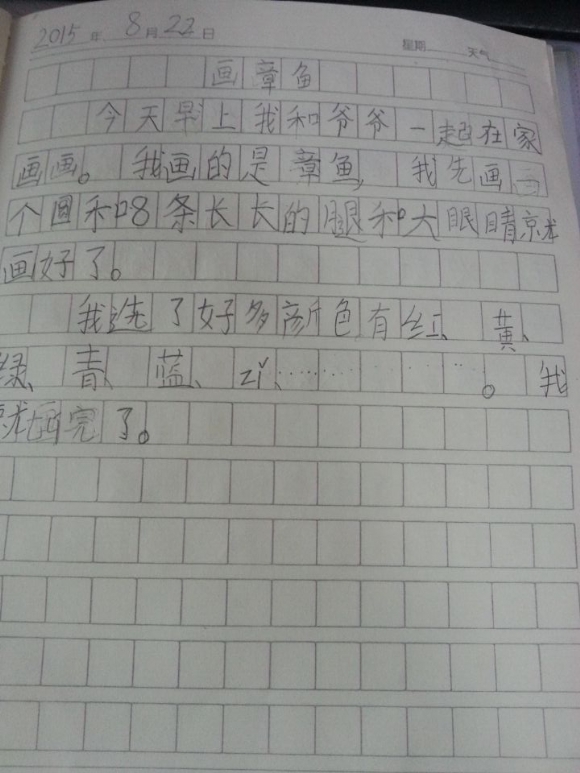 2015年8月22日 星期 天气
画章鱼
今天早上我和爷爷一起在家
画画。我画的是章鱼,我先画一
个圆和8条长长的腿和大眼睛就
画好了。
我选了好多颜色有红、黄、
绿、青、蓝、zǐ、……………。我
就画完了。